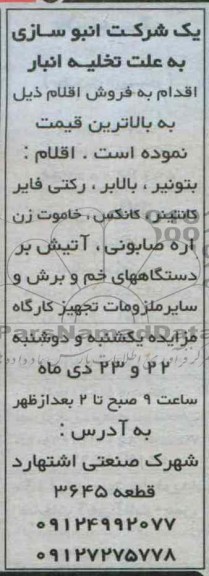 یک شرکت انبو سازی
به علت تخلیه انبار
اقدام به فروش اقلام ذیل
به بالاترین قیمت
نموده است . اقلام :
بتونیر ، بالابر ، رکتی فایر
کانتینر ، کانکس ، خاموت زن
اره صابونی ، آتیش بر
دستگاههای خم و برش و
سایرملزومات تجهیز کارگاه
مزایده یکشنبه و دوشنبه
۲۲ و ۲۳ دی ماه
ساعت ۹ صبح تا ۲ بعدازظهر
به آدرس :
شهرک صنعتی اشتهارد
قطعه ۳۶۴۵
۰۹۱۲۴۹۹۲۰۷۷
۰۹۱۲۷۲۷۵۷۷۸